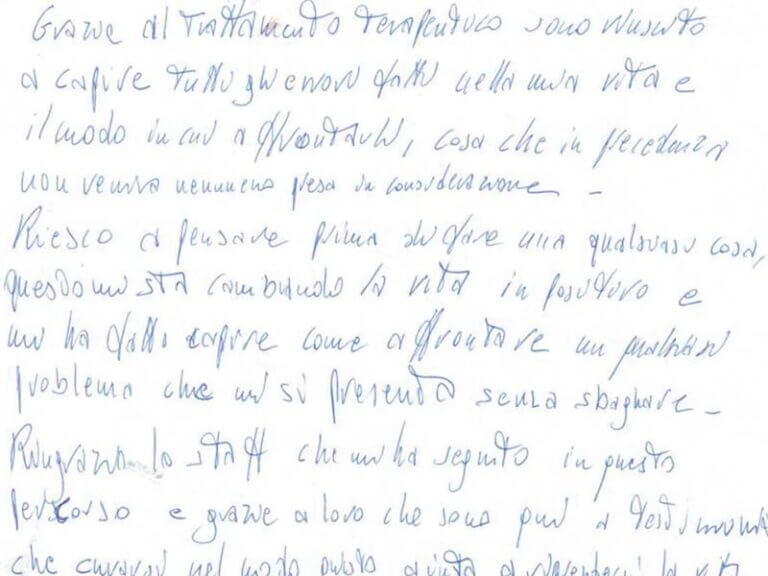 Grazie al trattamento terapeutico sono riuscito
a capire tutti gli errori fatti nella mia vita e
il modo in cui affrontarli, cosa che in precedenza
non veniva nemmeno presa in considerazione -
Riesco a pensare prima di fare una qualsiasi cosa,
questo mi sta cambiando la vita in positivo e
mi ha fatto capire come affrontare un qualsiasi
problema che mi si presenta senza sbagliare -
Ringrazio lo staff che mi ha seguito in questo
percorso e grazie a loro che sono qui a testimoniare
che curarsi nel modo giusto aiuta a riprendersi la vita